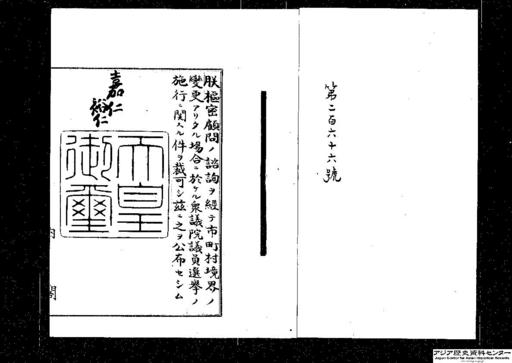 第二百六十六號
朕樞密顧問ノ諮詢ヲ經テ市町村境界ノ
變更アリタル場合ニ於ケル衆議院議員選擧ノ
施行ニ關スル件ヲ裁可シ茲ニ之ヲ公布セシム
嘉仁
裕仁
天皇
御璽
内閣
アジア歴史資料センター
Japan Center for Asian Historical Records